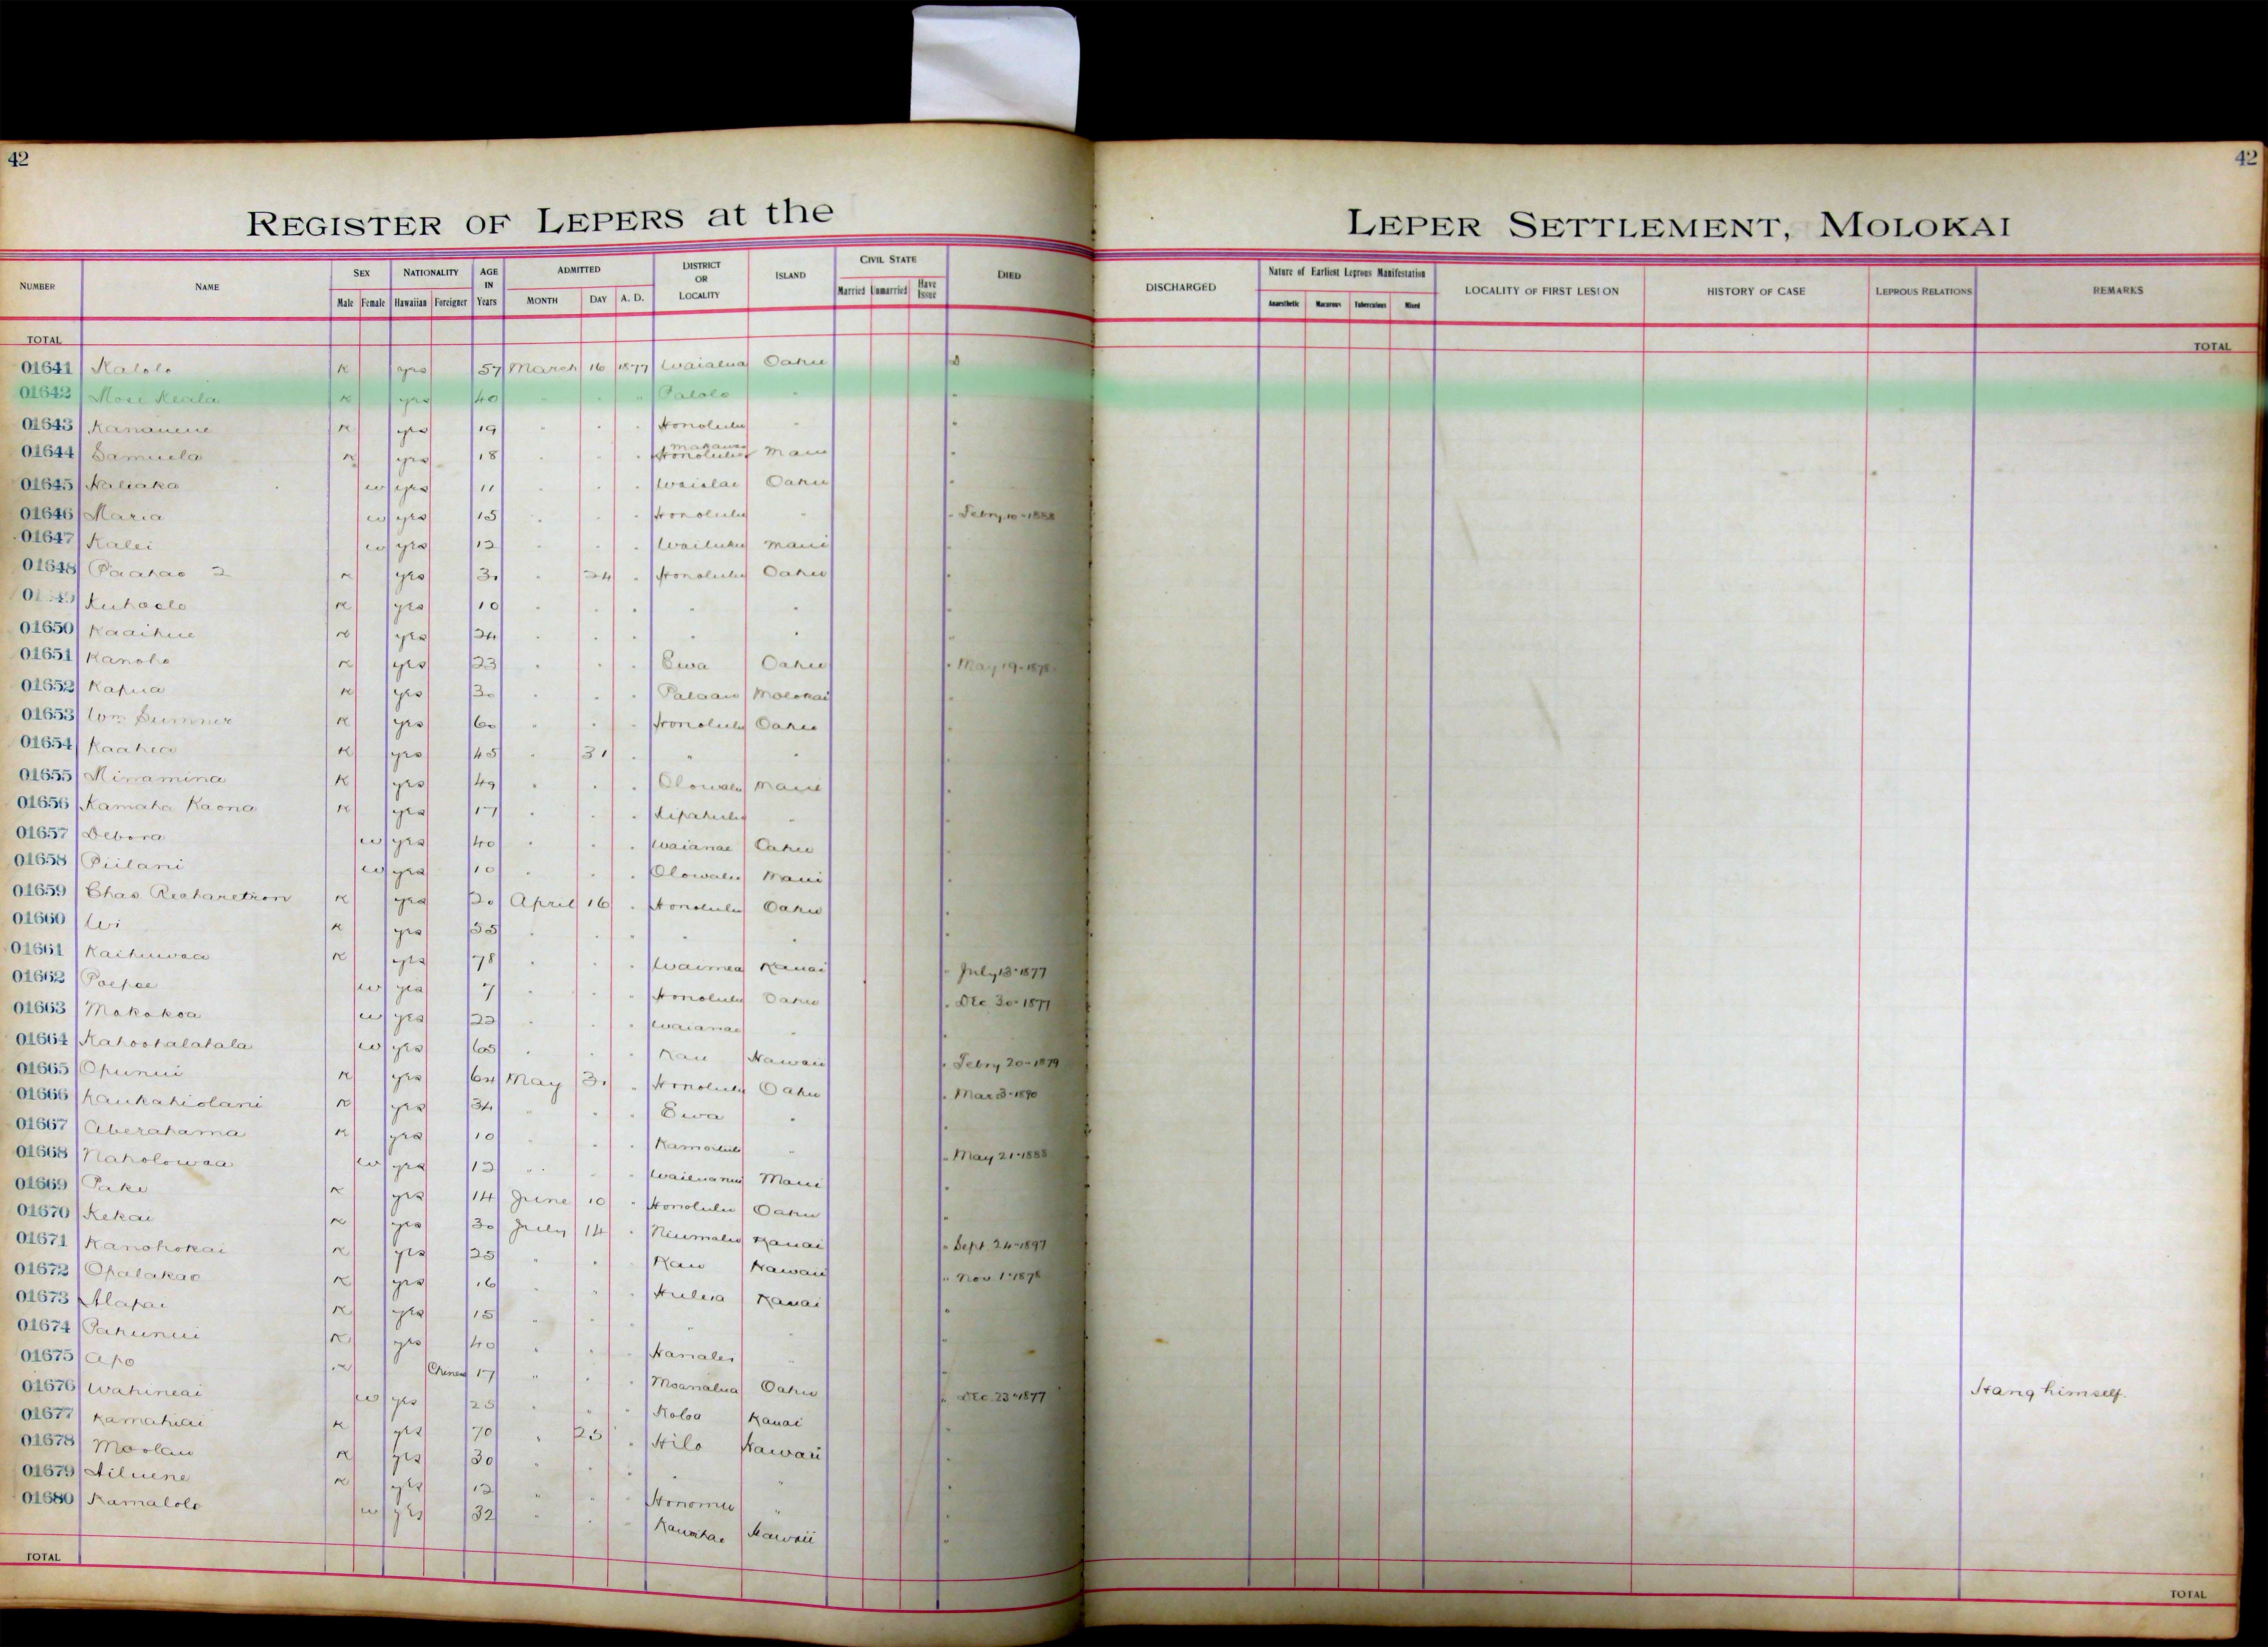 42
42
REGISTER OF LEPERS at the
LEPER SETTLEMENT, MOLOKAI
NUMBER NAME SEX NATIONALITY AGE IN Years ADMITTED DISTRICT OR LOCALITY ISLAND CIVIL STATE DIED
Male Female Hawaiian Foreigner MONTH DAY A. D. Married Unmarried Have Issue
DISCHARGED Nature of Earliest Leprous Manifestation LOCALITY OF FIRST LESION HISTORY OF CASE LEPROUS RELATIONS REMARKS
Anaesthetic Macurous Tuberculous Mixed
TOTAL
TOTAL
01641 Kalolo K yes 57 March 16 1877 Waialua Oahu
01642 Mose Keala K yes 40 " " " Palolo "
01643 Kananuine K yes 19 " " " Honolulu "
01644 Samuela K yes 18 " " " Makawao Honolulu Maui "
01645 Naliaka w yes 11 " " " Waialae Oahu "
01646 Maria w yes 15 " " " Honolulu " " Febry 10-1888
01647 Kalei w yes 12 " " " Wailuku Maui "
01648 Paahao 2 K yes 30 " 24 " Honolulu Oahu "
Kuhaelo K yes 10 " " " " " "
01650 Kaaihue K yes 24 " " " " " "
01651 Kanoho K yes 23 " " " Ewa Oahu " May 19-1878
01652 Kapua K yes 30 " " " Palaau Molokai "
01653 Wm Sumner K yes 60 " " " Honolulu Oahu "
01654 Kaahia K yes 45 " 31 " " " "
01655 Minamina K yes 49 " " " Olowalu Maui "
01656 Kamaha Kaona K yes 17 " " " Kipahulu " "
01657 Debora w yes 40 " " " Waianae Oahu "
01658 Piilani w yes 10 " " " Olowalu Maui "
01659 Chas Richaretson K yes 20 April 16 " Honolulu Oahu "
01660 Wi K yes 35 " " " " " "
01661 Kaihuwaa K yes 78 " " " Waimea Kauai " July 13-1877
01662 Poepoe w yes 7 " " " Honolulu Oahu " Dec. 30-1877
01663 Makakoa w yes 22 " " " Waianae " "
01664 Kahoohalahala w yes 65 " " " Kau Hawaii " Febry 20-1879
01665 Opunui K yes 64 May 31 " Honolulu Oahu " Mar 3-1890
01666 Kaukahiolani K yes 34 " " " Ewa " "
01667 Aberahama K yes 10 " " " Kamoiliili " " May 21-1888
01668 Naholowaa w yes 12 " " " Wailuanui Maui "
01669 Pake K yes 14 June 10 " Honolulu Oahu "
01670 Kekai K yes 30 July 14 " Niumalu Kauai " Sept. 24-1897
01671 Kanohokai K yes 25 " " " Kau Hawaii " Nov. 1-1878
01672 Opalakao K yes 16 " " " Huleia Kauai "
01673 Alapai K yes 15 " " " " " "
01674 Pahunui K yes 40 " " " Hanalei " "
01675 Apo K Chinese 17 " " " Moanalua Oahu " Dec. 23-1877 Hang himself.
01676 Wahineai w yes 25 " " " Koloa Kauai "
01677 Kamahiai K yes 70 " 25 " Hilo Hawaii "
01678 Moolau K yes 30 " " " " " "
01679 Hiluene K yes 12 " " " Honomu " "
01680 Kamalolo w yes 32 " " " Kawaihae Hawaii "
TOTAL
TOTAL